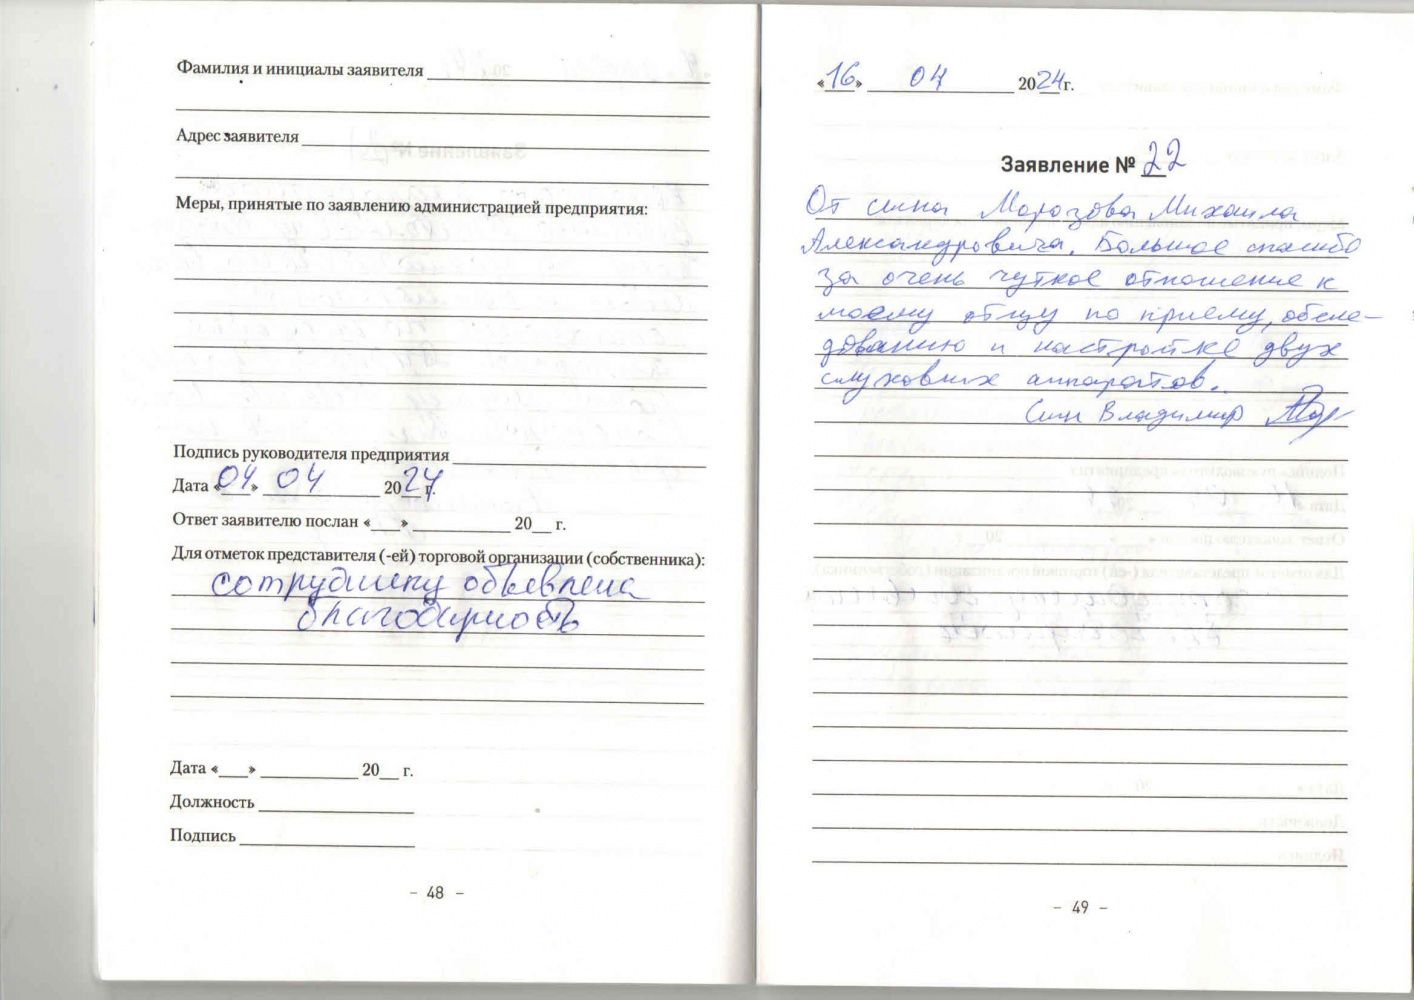 Фамилия и инициалы заявителя
Адрес заявителя
Меры, принятые по заявлению администрацией предприятия:
Подпись руководителя предприятия
Дата «04» 04 2024 г.
Ответ заявителю послан «___» ___ 20__ г.
Для отметок представителя (-ей) торговой организации (собственника):
сотруднику объявлена
благодарность
Дата «___» ___ 20__ г.
Должность
Подпись
- 48 -
«16» 04 2024 г.
Заявление № 22
От сына Морозова Михаила
Александровича. Большое спасибо
за очень чуткое отношение к
моему отцу по приему, обсле-
дованию и настройке двух
слуховых аппаратов.
Сын Владимир
- 49 -